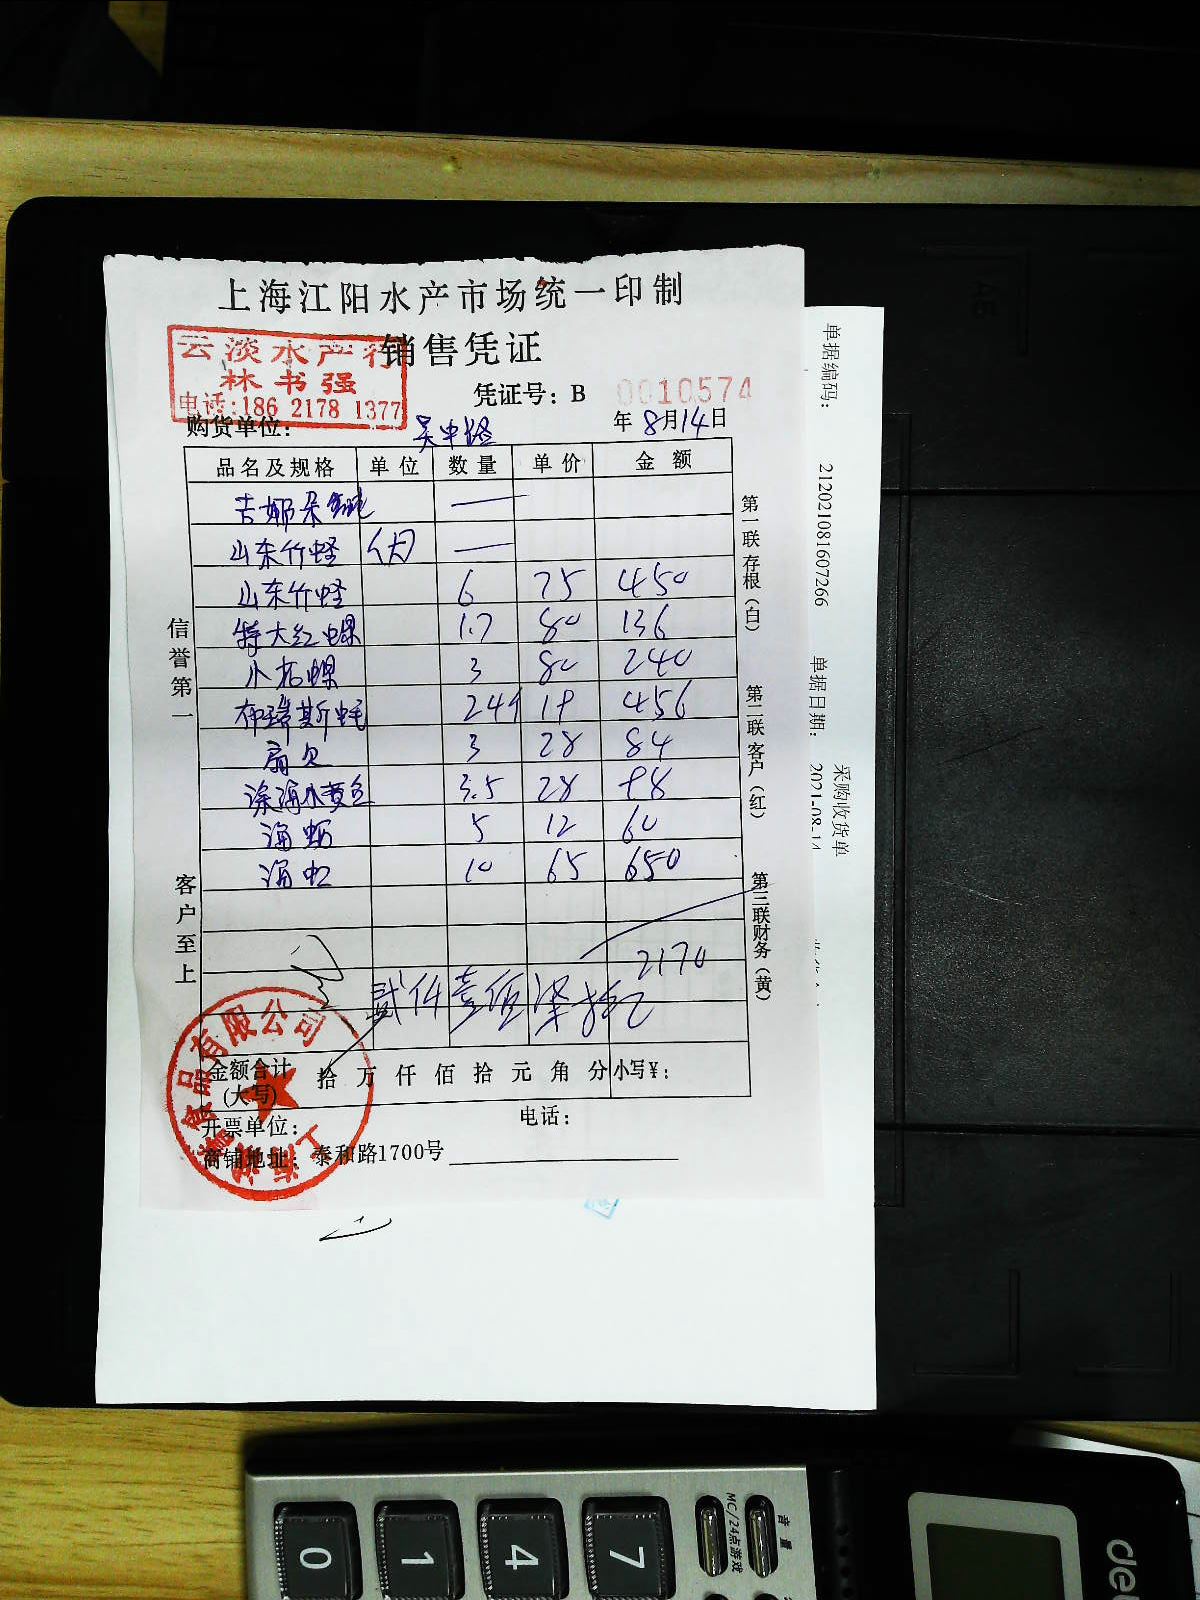 上海江阳水产市场统一印制
销售凭证
云淡水产行
林书强
电话:186 2178 1377
凭证号：B 0010574
购货单位： 吴中路
年 8月14日
品名及规格 单位 数量 单价 金额
吉娜朵蚝 —
山东竹蛏 —
山东竹蛏 6 75 450
特大红螺 1.7 80 136
小花螺 3 80 240
布瑞斯蚝 24个 19 456
扇贝 3 28 84
深海小黄鱼 3.5 28 98
海蛎 5 12 60
海虹 10 65 650
2170
贰仟壹佰柒拾元
金额合计
(大写)
拾 万 仟 佰 拾 元 角 分 小写¥：
开票单位： 电话：
商铺地址：泰和路1700号
信誉第一
客户至上
第一联存根（白）
第二联客户（红）
第三联财务（黄）
食品有限公司
上海
采购收货单
单据编码： 212021081607266
单据日期： 2021-08-14
0
1
4
7
MC/24点游戏
音量
de